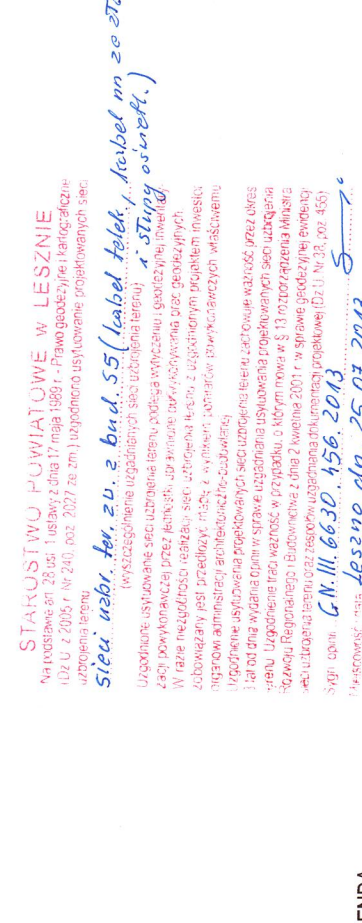 STAROSTWO POWIATOWE w LESZNIE
Na podstawie art. 28 ust. 1 ustawy z dnia 17 maja 1989 r. - Prawo geodezyjne i kartograficzne
(Dz.U. z 2005 r. Nr 240, poz. 2027 ze zm.) uzgodniono usytuowanie projektowanych sieci
uzbrojenia terenu
sieci uzbr. ter. zw. z bud. S5 (kabel telek., kabel nn
i słupy oświetl.)
(wyszczególnienie uzgadnianych sieci uzbrojenia terenu)
Uzgodnione usytuowanie sieci uzbrojenia terenu podlega wytyczeniu i geodezyjnej inwentary-
zacji powykonawczej przez jednostki uprawnione do wykonywania prac geodezyjnych.
W razie niezgodności realizacji sieci uzbrojenia terenu z uzgodnionym projektem inwestor
zobowiązany jest przedłożyć mapę z wynikiem pomiarów powykonawczych właściwemu
organowi administracji architektoniczno-budowlanej
Uzgodnienie usytuowania projektowanych sieci uzbrojenia terenu zachowuje ważność przez okres
3 lat od dnia wydania opinii w sprawie uzgadniania usytuowania projektowanych sieci uzbrojenia
terenu. Uzgodnienie traci ważność w przypadku, o którym mowa w § 13 rozporządzenia Ministra
Rozwoju Regionalnego i Budownictwa z dnia 2 kwietnia 2001 r. w sprawie geodezyjnej ewidencji
sieci uzbrojenia terenu oraz zespołów uzgadniania dokumentacji projektowej (Dz.U. Nr 38, poz. 455)
Sygn. opinii G.N.III.6630.456.2013
Miejscowość, data Leszno dn. 25.07.2013
ENDA